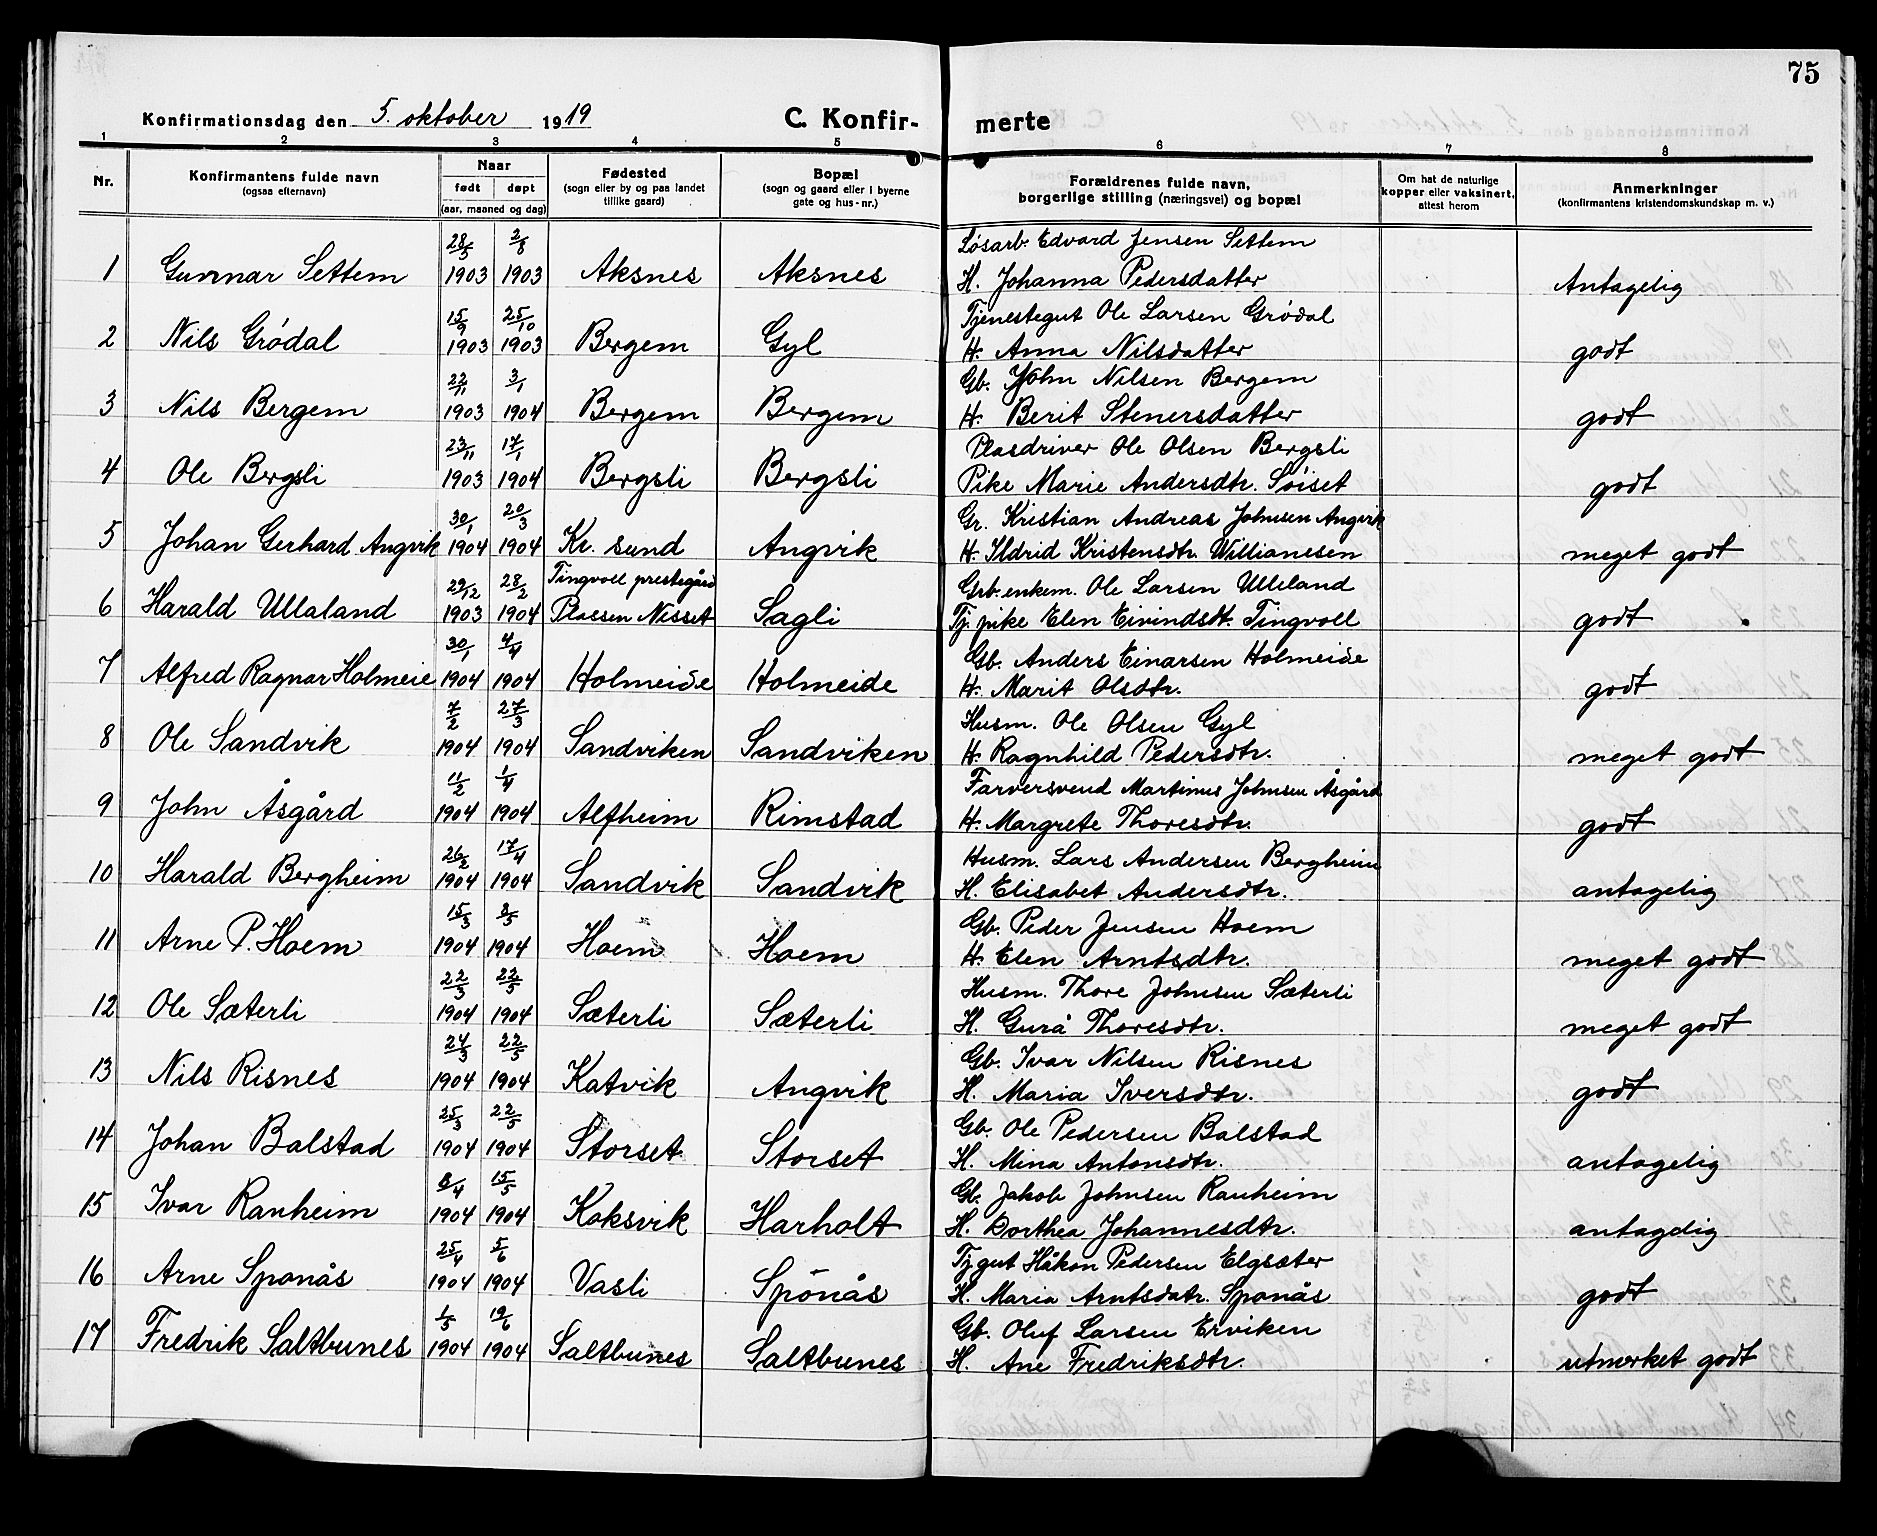 75
Konfirmationsdag den 5. oktober 1919 C. Konfir- merte
1 2 3 4 5 6 7 8
Nr. Konfirmantens fulde navn (ogsaa efternavn) Naar født døpt (aar, maaned og dag) Fødested (sogn eller by og paa landet tillike gaard) Bopæl (sogn og gaard eller i byerne gate og hus-nr.) Forældrenes fulde navn, borgerlige stilling (næringsvei) og bopæl Om hat de naturlige kopper eller vaksinert, attest herom Anmerkninger (konfirmantens kristendomskundskap m. v.)
28/5 2/8 Løsarb. Edvard Jensen Settem
1 Gunnar Settem 1903 1903 Aksnes Aksnes H. Johanna Pedersdatter Antagelig
15/9 25/10 Tjenestegut Ole Larsen Grødal
2 Nils Grødal 1903 1903 Bergem Gyl H. Anna Nilsdatter godt
22/11 3/1 Gb. John Nilsen Bergem
3 Nils Bergem 1903 1904 Bergem Bergem H. Berit Stenersdatter godt
23/11 17/1 Plasdriver Ole Olsen Bergsli
4 Ole Bergsli 1903 1904 Bergsli Bergsli Pike Marie Andersdtr. Søiset godt
30/1 20/3 Gr. Kristian Andreas Johnsen Angvik
5 Johan Gerhard Angvik 1904 1904 Kr. sund Angvik H. Ildrid Kristensdtr. Willianesen meget godt
29/12 28/2 Tingvoll prestegård Grb. enkem. Ole Larsen Ulleland
6 Harald Ullaland 1903 1904 Plassen Nisset Sagli Tj. pike Elen Eivindsdt. Tingvoll godt
30/1 4/4 Gb. Anders Einarsen Holmeide
7 Alfred Ragnar Holmeie 1904 1904 Holmeide Holmeide H. Marit Olsdtr. godt
7/2 27/3 Husm. Ole Olsen Gyl
8 Ole Sandvik 1904 1904 Sandviken Sandviken H. Ragnhild Pedersdtr. meget godt
11/2 1/4 Farversvend Martinus Johnsen Åsgård
9 John Åsgård 1904 1904 Alfheim Rimstad H. Margrete Thoresdtr. godt
26/2 17/4 Husm. Lars Andersen Bergheim
10 Harald Bergheim 1904 1904 Sandvik Sandvik H. Elisabet Andersdtr. antagelig
15/3 8/5 Gb. Peder Jensen Hoem
11 Arne P. Hoem 1904 1904 Hoem Hoem H. Elen Arntsdtr. meget godt
22/3 22/5 Husm. Thore Johnsen Sæterli
12 Ole Sæterli 1904 1904 Sæterli Sæterli H. Gurå Thoresdtr. meget godt
24/3 22/5 Gb. Ivar Nilsen Risnes
13 Nils Risnes 1904 1904 Katvik Angvik H. Maria Iversdtr. godt
25/3 22/5 Gb. Ole Pedersen Balstad
14 Johan Balstad 1904 1904 Storset Storset H. Mina Antonsdtr. antagelig
8/4 15/5 Gb. Jakob Johnsen Ranheim
15 Ivar Ranheim 1904 1904 Koksvik Harholt H. Dorthea Johannesdtr. antagelig
25/4 5/6 Tj gut Håkon Pedersen Elgsæter
16 Arne Sponås 1904 1904 Vasli Sponås H. Maria Arntsdatr. Sponås godt
1/5 19/6 Gb. Oluf Larsen Erviken
17 Fredrik Saltbunes 1904 1904 Saltbunes Saltbunes H. Ane Fredriksdtr. utmerket godt